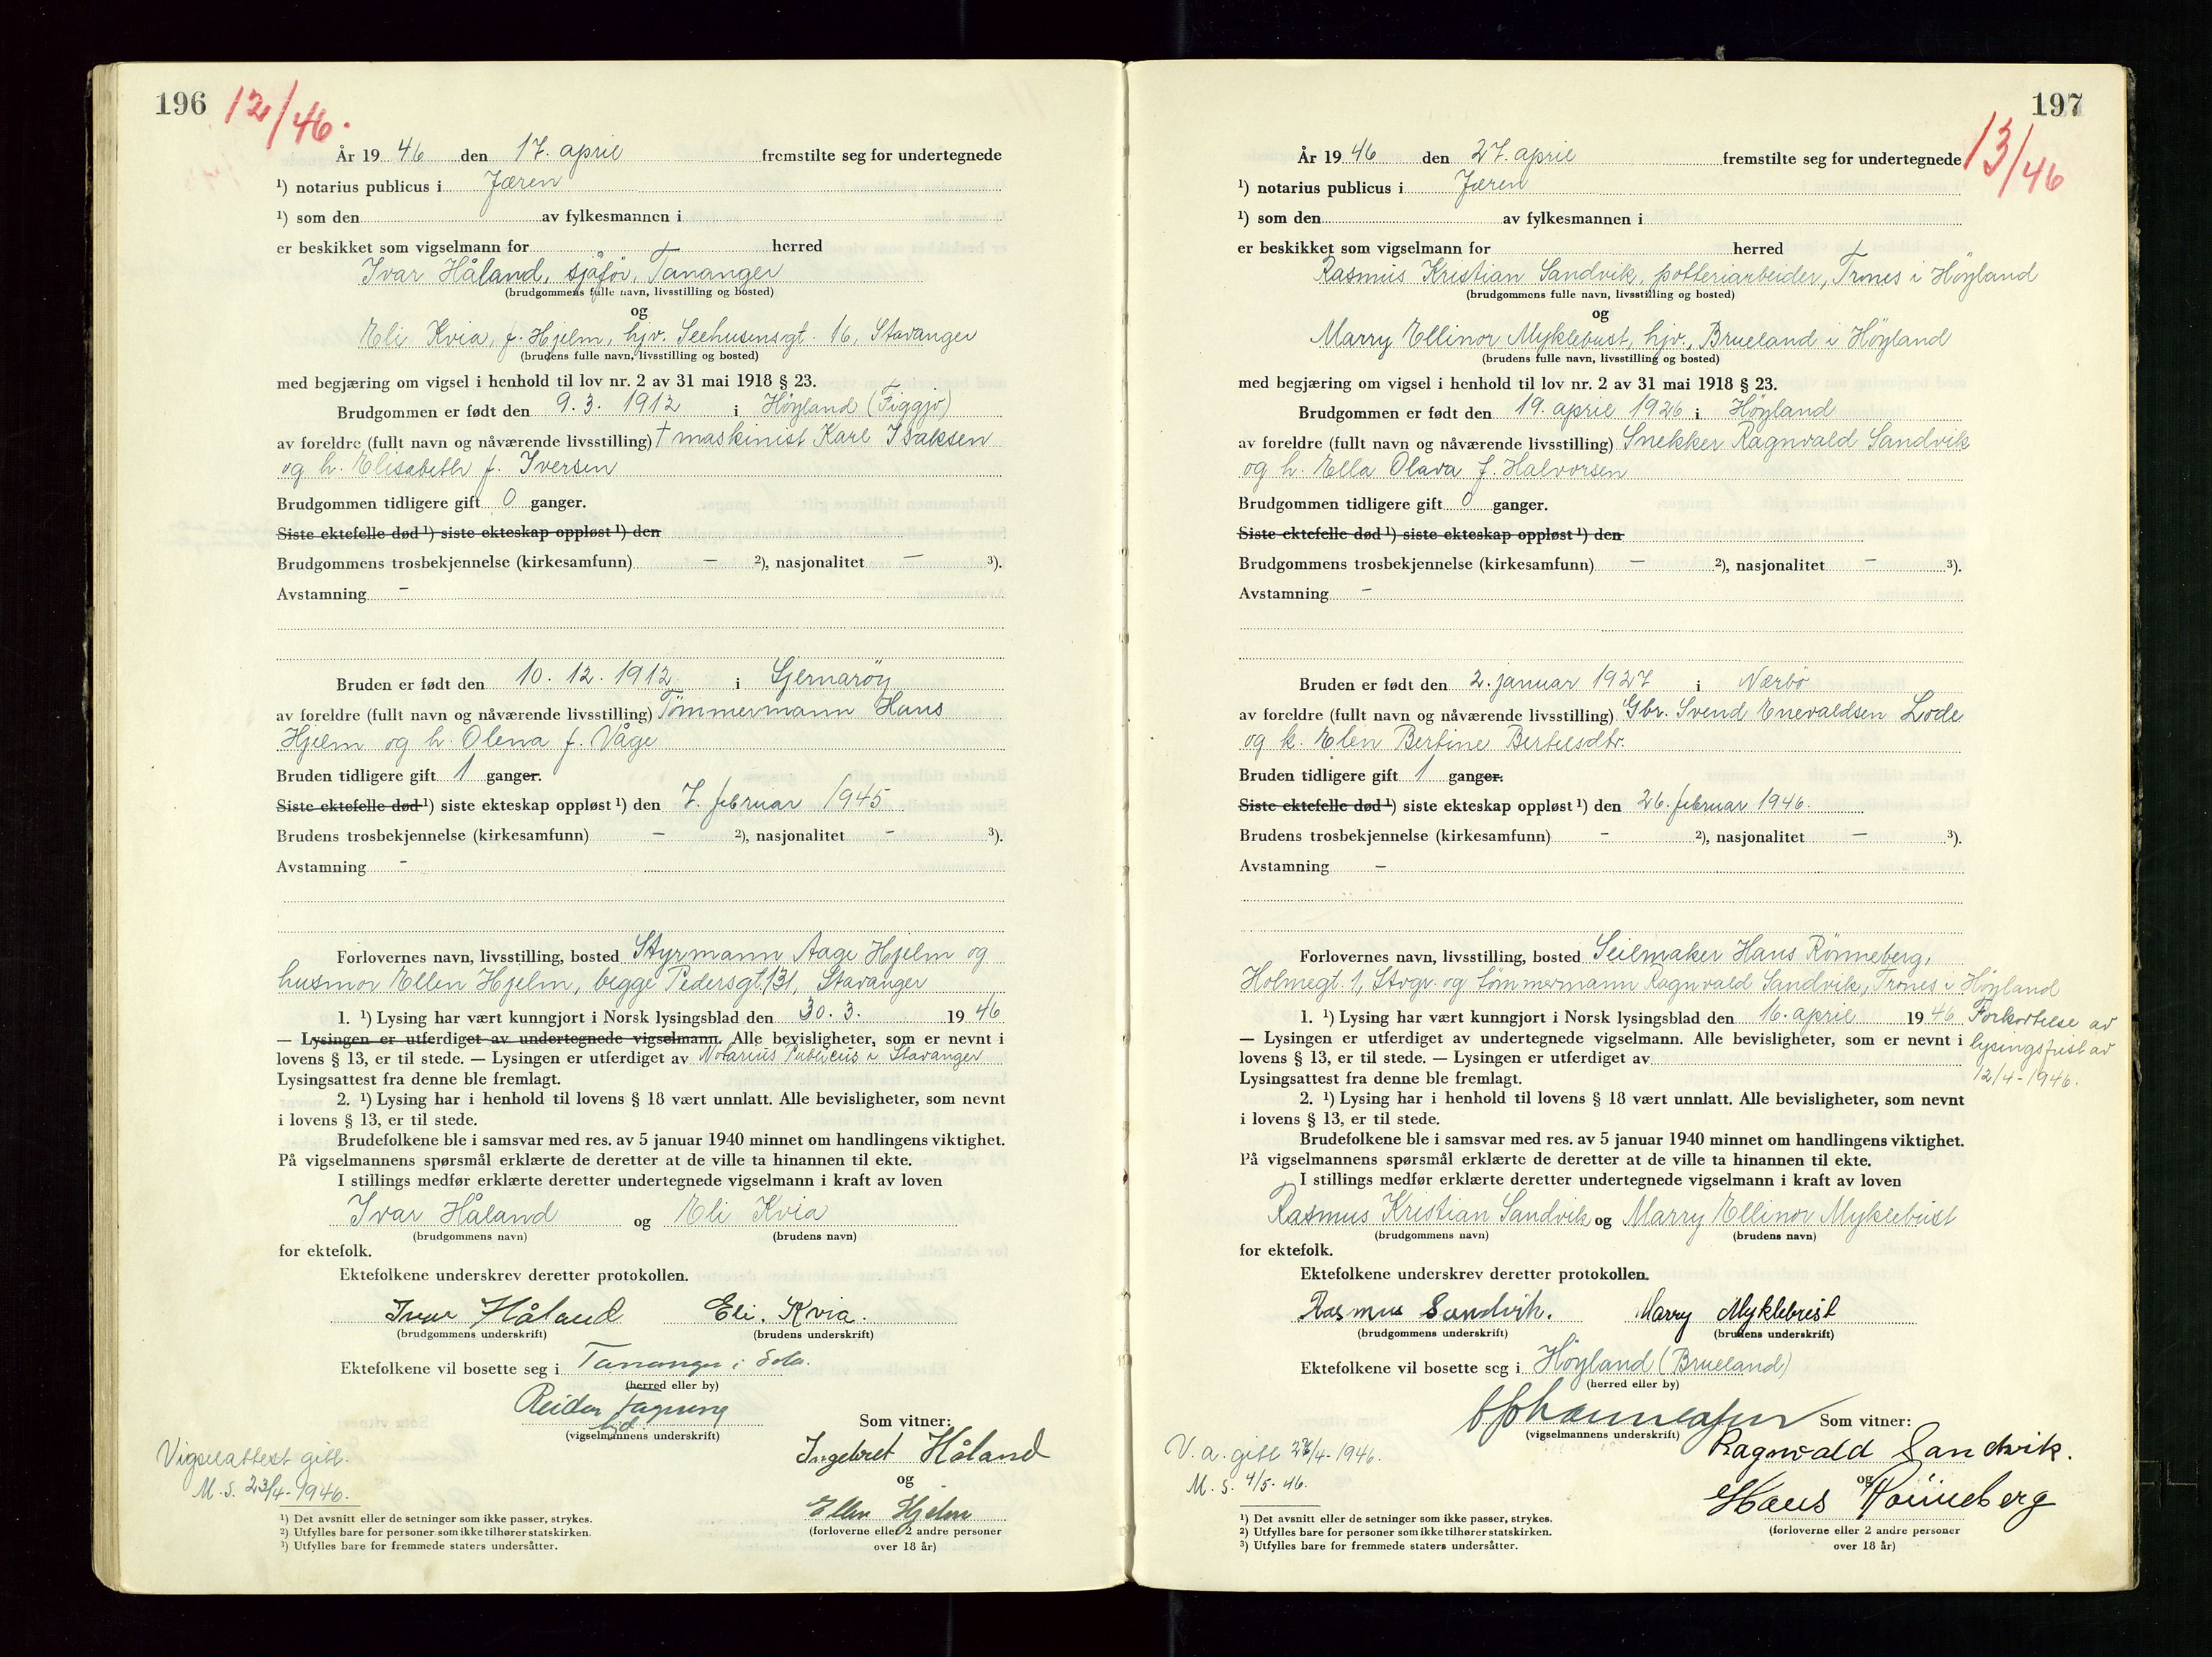 196 12/46.
År 19 46 den 17. april fremstilte seg for undertegnede
¹) notarius publicus i Jæren
¹) som den av fylkesmannen i
er beskikket som vigselmann for herred
Ivar Håland, sjåför, Tananger
(brudgommens fulle navn, livsstilling og bosted)
og
Eli Kvia, f. Hjelm, hjv. Seehusensgt. 16, Stavanger
(brudens fulle navn, livsstilling og bosted)
med begjæring om vigsel i henhold til lov nr. 2 av 31 mai 1918 § 23.
Brudgommen er født den 9. 3. 1912 i Höyland (Figgjo)
av foreldre (fullt navn og nåværende livsstilling) † maskinist Karl Isaksen
og h. Elisabeth f. Iversen
Brudgommen tidligere gift 0 ganger.
Siste ektefelle død ¹) siste ekteskap oppløst ¹) den
Brudgommens trosbekjennelse (kirkesamfunn) – ²), nasjonalitet – ³).
Avstamning –
Bruden er født den 10. 12. 1912 i Sjernaröy
av foreldre (fullt navn og nåværende livsstilling) Tömmermann Hans
Hjelm og h. Olena f. Våge
Bruden tidligere gift 1 ganger.
Siste ektefelle død ¹) siste ekteskap oppløst ¹) den 7. februar 1945
Brudens trosbekjennelse (kirkesamfunn) – ²), nasjonalitet – ³).
Avstamning –
Forlovernes navn, livsstilling, bosted Styrmann Aage Hjelm og
husmor Ellen Hjelm, begge Pedersgt. 131, Stavanger
1. ¹) Lysing har vært kunngjort i Norsk lysingsblad den 30. 3. 19 46
— Lysingen er utferdiget av undertegnede vigselmann. Alle bevisligheter, som er nevnt i
lovens § 13, er til stede. — Lysingen er utferdiget av Notarius Publicus i Stavanger
Lysingsattest fra denne ble fremlagt.
2. ¹) Lysing har i henhold til lovens § 18 vært unnlatt. Alle bevisligheter, som nevnt
i lovens § 13, er til stede.
Brudefolkene ble i samsvar med res. av 5 januar 1940 minnet om handlingens viktighet.
På vigselmannens spørsmål erklærte de deretter at de ville ta hinannen til ekte.
I stillings medfør erklærte deretter undertegnede vigselmann i kraft av loven
Ivar Håland og Eli Kvia
(brudgommens navn) (brudens navn)
for ektefolk.
Ektefolkene underskrev deretter protokollen.
Ivar Håland Eli. Kvia.
(brudgommens underskrift) (brudens underskrift)
Ektefolkene vil bosette seg i Tananger i Sola.
(herred eller by)
Reidar
(vigselmannens underskrift)
Som vitner:
Ingebret Håland
og
Ellen Hjelm
(forloverne eller 2 andre personer
over 18 år)
Vigselattest gitt.
M. S. 23/4-1946.
¹) Det avsnitt eller de setninger som ikke passer, strykes.
²) Utfylles bare for personer som ikke tilhører statskirken.
³) Utfylles bare for fremmede staters undersåtter.
197
13/46
År 19 46 den 27. april fremstilte seg for undertegnede
¹) notarius publicus i Jæren
¹) som den av fylkesmannen i
er beskikket som vigselmann for herred
Rasmus Kristian Sandvik, potteriarbeider, Trones i Höyland
(brudgommens fulle navn, livsstilling og bosted)
og
Marry Ellinor Myklebust, hjv., Brueland i Höyland
(brudens fulle navn, livsstilling og bosted)
med begjæring om vigsel i henhold til lov nr. 2 av 31 mai 1918 § 23.
Brudgommen er født den 19. april 1926 i Höyland
av foreldre (fullt navn og nåværende livsstilling) Snekker Ragnvald Sandvik
og h. Ella Olava f. Halvorsen
Brudgommen tidligere gift 0 ganger.
Siste ektefelle død ¹) siste ekteskap oppløst ¹) den
Brudgommens trosbekjennelse (kirkesamfunn) – ²), nasjonalitet – ³).
Avstamning –
Bruden er født den 2. januar 1927 i Nærbö
av foreldre (fullt navn og nåværende livsstilling) Gbr. Svend Enevaldsen Lode
og h. Elen Bertine Bertelsdtr.
Bruden tidligere gift 1 ganger.
Siste ektefelle død ¹) siste ekteskap oppløst ¹) den 26. februar 1946.
Brudens trosbekjennelse (kirkesamfunn) – ²), nasjonalitet – ³).
Avstamning –
Forlovernes navn, livsstilling, bosted Seilmaker Hans Rönneberg,
Holmegt. 1, Stvgr. og tömmermann Ragnvald Sandvik, Trones i Höyland
1. ¹) Lysing har vært kunngjort i Norsk lysingsblad den 16. april 19 46
— Lysingen er utferdiget av undertegnede vigselmann. Alle bevisligheter, som er nevnt i
lovens § 13, er til stede. — Lysingen er utferdiget av
Lysingsattest fra denne ble fremlagt.
Forkortelse av
lysingsfrist av
12/4-1946.
2. ¹) Lysing har i henhold til lovens § 18 vært unnlatt. Alle bevisligheter, som nevnt
i lovens § 13, er til stede.
Brudefolkene ble i samsvar med res. av 5 januar 1940 minnet om handlingens viktighet.
På vigselmannens spørsmål erklærte de deretter at de ville ta hinannen til ekte.
I stillings medfør erklærte deretter undertegnede vigselmann i kraft av loven
Rasmus Kristian Sandvik og Marry Ellinor Myklebust
(brudgommens navn) (brudens navn)
for ektefolk.
Ektefolkene underskrev deretter protokollen.
Rasmus Sandvik. Marry Myklebust
(brudgommens underskrift) (brudens underskrift)
Ektefolkene vil bosette seg i Höyland (Brueland)
(herred eller by)
(vigselmannens underskrift)
Som vitner:
Ragnvald Sandvik.
og
Hans Rönneberg
(forloverne eller 2 andre personer
over 18 år)
V. a. gitt 27/4-1946.
M. S. 4/5. 46.
¹) Det avsnitt eller de setninger som ikke passer, strykes.
²) Utfylles bare for personer som ikke tilhører statskirken.
³) Utfylles bare for fremmede staters undersåtter.